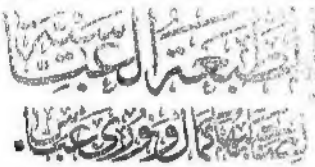 المطبعة العباسية
لصاحبيها كمال ونوري عباس.